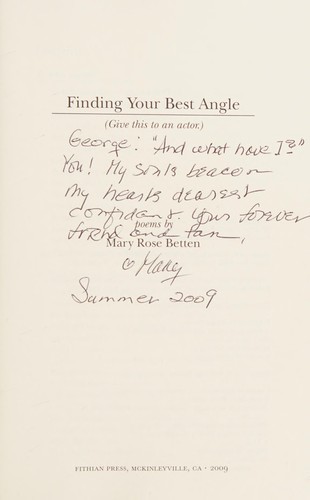 Finding Your Best Angle
(Give this to an actor.)
George: "And what have I?"
You! My soul's beacon
My hearts dearest
confidant. Your forever
poems by
friend and fan,
Mary Rose Betten
Mary
Summer 2009
FITHIAN PRESS, MCKINLEYVILLE, CA · 2009